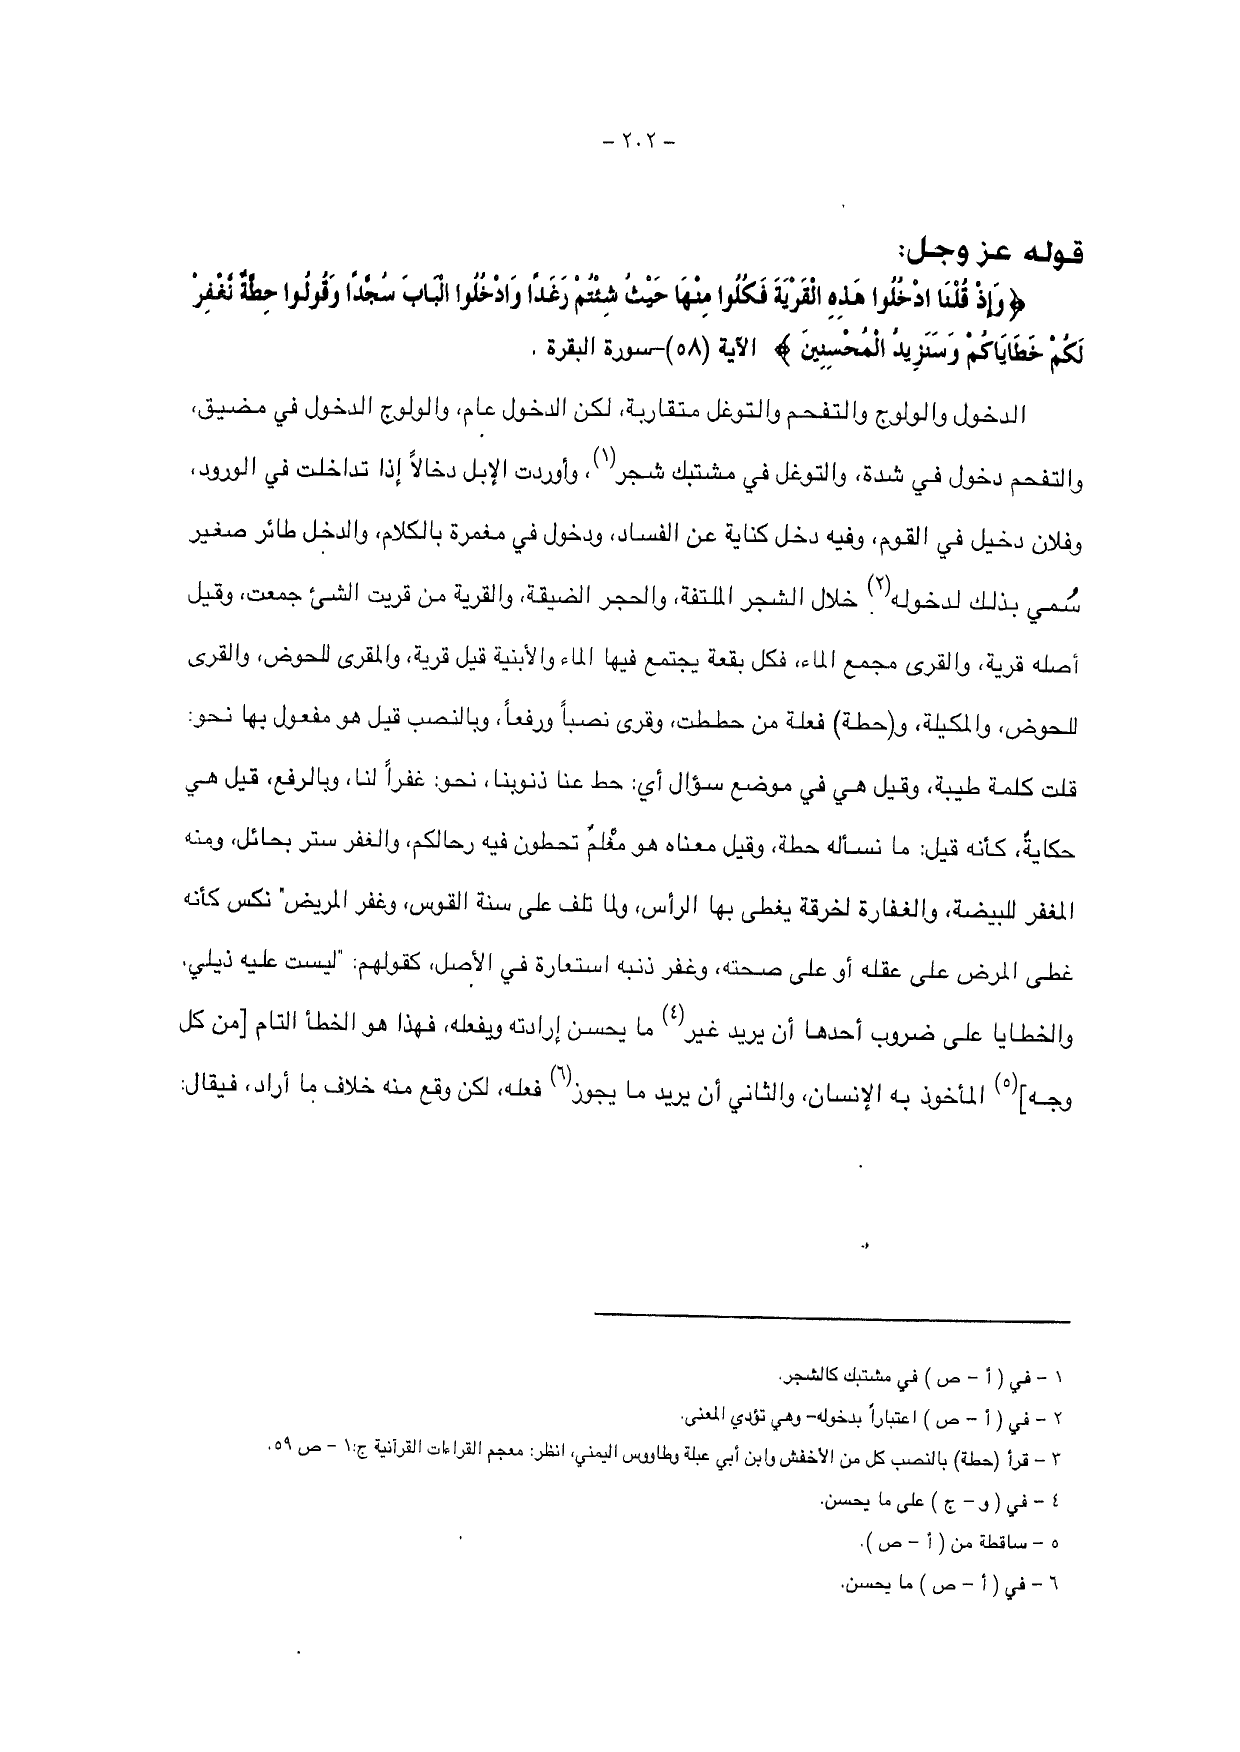 - ٢٠٢ -
قوله عز وجل:
﴿ وَإِذْ قُلْنَا ادْخُلُوا هَذِهِ الْقَرْيَةَ فَكُلُوا مِنْهَا حَيْثُ شِئْتُمْ رَغَداً وَادْخُلُوا الْبَابَ سُجَّداً وَقُولُوا حِطَّةٌ نَغْفِرْ
لَكُمْ خَطَايَاكُمْ وَسَنَزِيدُ الْمُحْسِنِينَ ﴾ الآية (٥٨)–سورة البقرة .
الدخول والولوج والتفحم والتوغل متقاربة، لكن الدخول عام، والولوج الدخول في مضيق،
والتفحم دخول في شدة، والتوغل في مشتبك شجر(١)، وأوردت الإبل دخالاً إذا تداخلت في الورود،
وفلان دخيل في القوم، وفيه دخل كناية عن الفساد، ودخول في مغمرة بالكلام، والدخل طائر صغير
سُمي بذلك لدخوله(٢) خلال الشجر الملتفة، والحجر الضيقة، والقرية من قريت الشئ جمعت، وقيل
أصله قرية، والقرى مجمع الماء، فكل بقعة يجتمع فيها الماء والأبنية قيل قرية، والمقرى للحوض، والقرى
للحوض، والمكيلة، و(حطة) فعلة من حططت، وقرى نصباً ورفعاً، وبالنصب قيل هو مفعول بها نحو:
قلت كلمة طيبة، وقيل هي في موضع سؤال أي: حط عنا ذنوبنا، نحو: غفراً لنا، وبالرفع، قيل هي
حكايةٌ، كأنه قيل: ما نسأله حطة، وقيل معناه هو معْلمٌ تحطون فيه رحالكم، والغفر ستر بحائل، ومنه
المغفر للبيضة، والغفارة لخرقة يغطى بها الرأس، ولما تلف على سنة القوس، وغفر المريض" نكس كأنه
غطى المرض على عقله أو على صحته، وغفر ذنبه استعارة في الأصل، كقولهم: "ليست عليه ذيلي،
والخطايا على ضروب أحدها أن يريد غير(٤) ما يحسن إرادته ويفعله، فهذا هو الخطأ التام [من كل
وجه](٥) المأخوذ به الإنسان، والثاني أن يريد ما يجوز(٦) فعله، لكن وقع منه خلاف ما أراد، فيقال:
١ – في ( أ – ص ) في مشتبك كالشجر.
٢ – في ( أ – ص ) اعتباراً بدخوله– وهي تؤدي المعنى.
٣ – قرأ (حطة) بالنصب كل من الأخفش وابن أبي عبلة وطاووس اليمني، انظر: معجم القراءات القرآنية ج:١ – ص ٥٩.
٤ – في ( و – ج ) على ما يحسن.
٥ – ساقطة من ( أ – ص ).
٦ – في ( أ – ص ) ما يحسن.